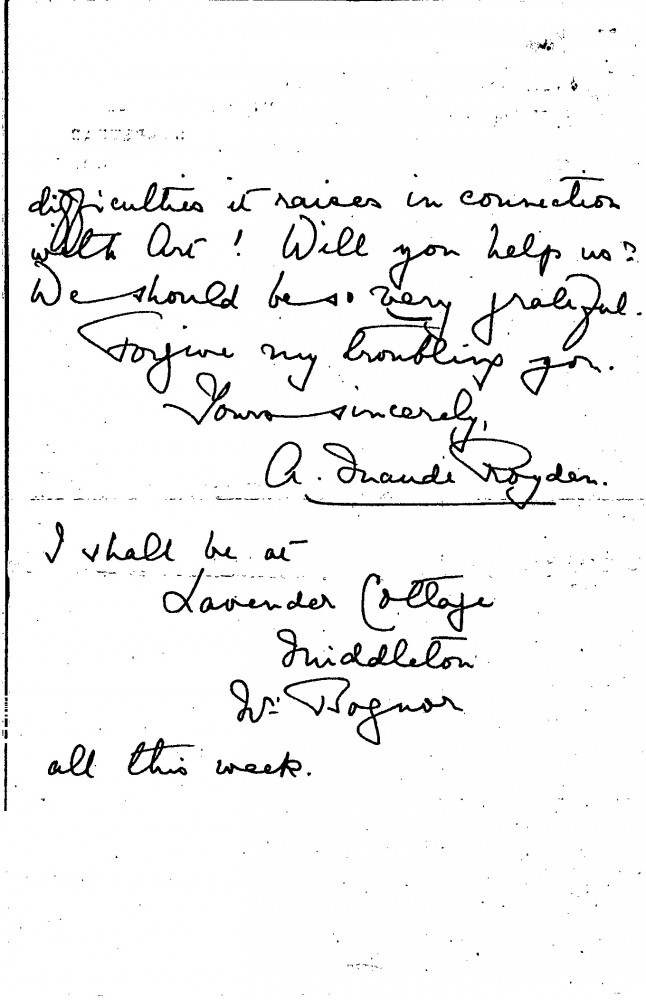 difficulties it raises in connection
with Art! Will you help us?
We should be so very grateful.
Forgive my troubling you.
Yours sincerely,
A. Maude Royden.
I shall be at
Lavender Cottage
Middleton
Nr. Bognor
all this week.